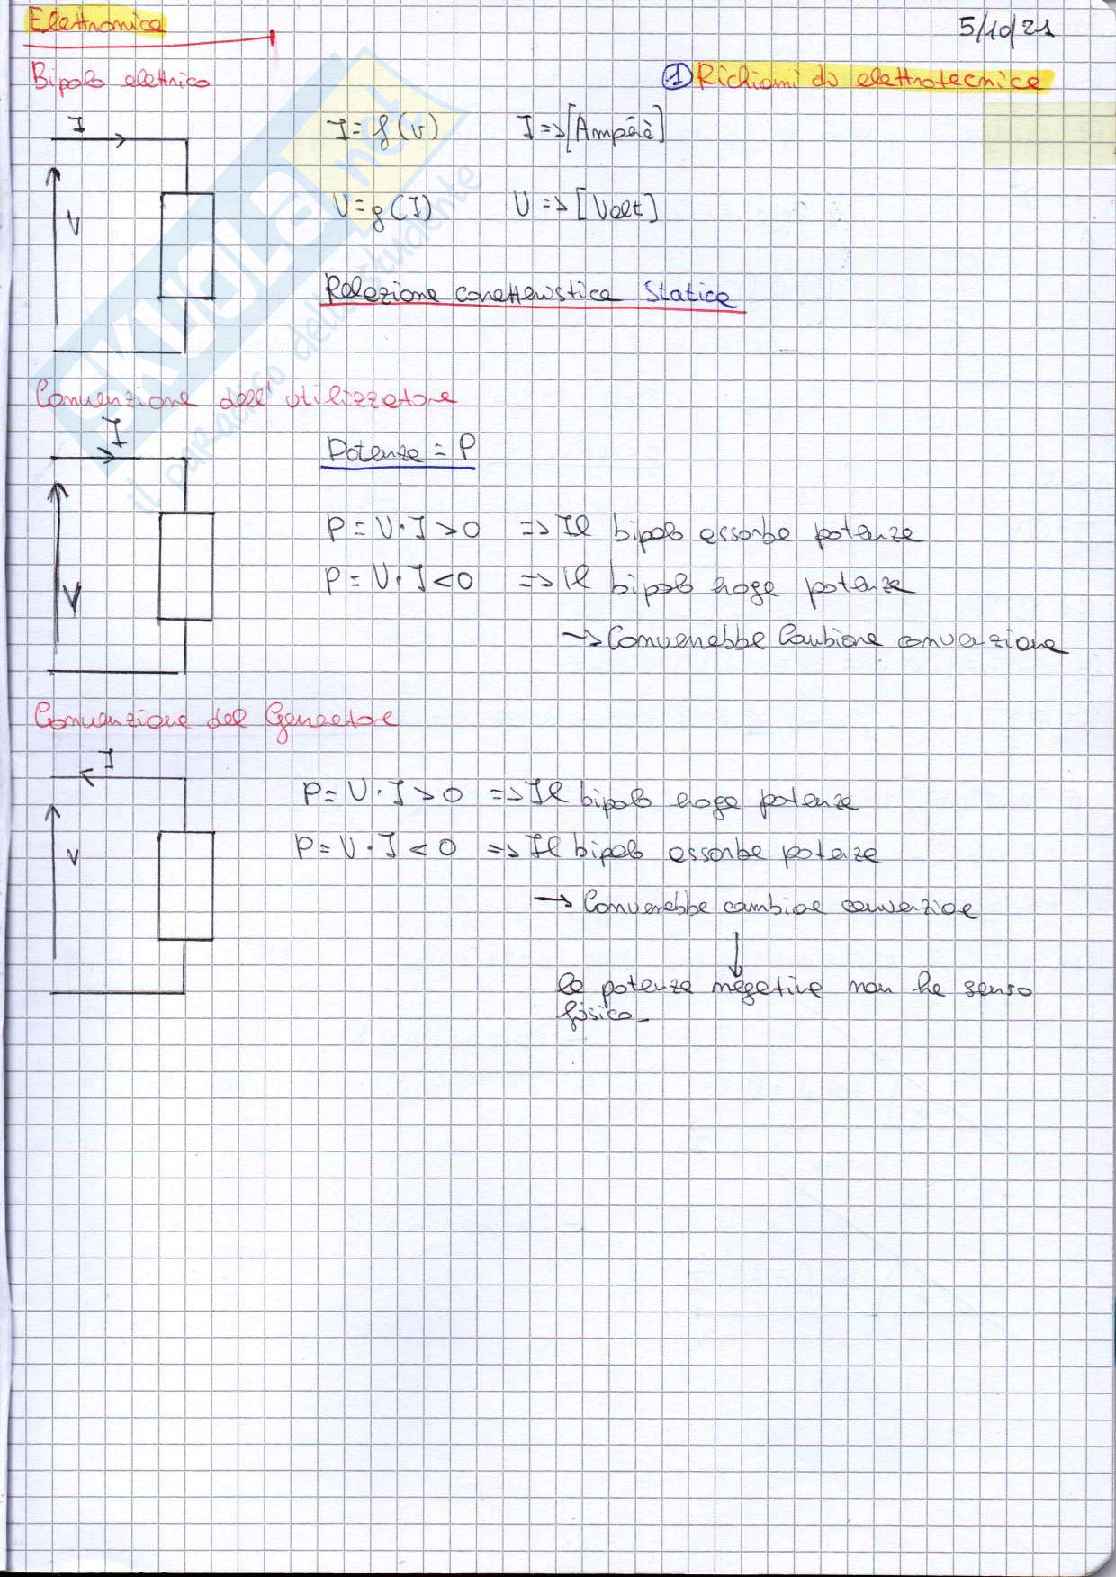 Elettronica
5/10/21
Bipolo elettrico
① Richiami di elettrotecnica
I
I = f(V) I => [Ampère]
V
V = g(I) V => [Volt]
Relazione caratteristica statica
Convenzione dell'utilizzatore
I
Potenza = P
V
P = V · I > 0 => Il bipolo assorbe potenza
P = V · I < 0 => Il bipolo eroga potenza
→ Converrebbe cambiare convenzione
Convenzione del Generatore
I
P = V · I > 0 => Il bipolo eroga potenza
V
P = V · I < 0 => Il bipolo assorbe potenza
→ Converrebbe cambiare convenzione
↓
La potenza negativa non ha senso
fisico
SKUOLA.net
il paradiso dello studente